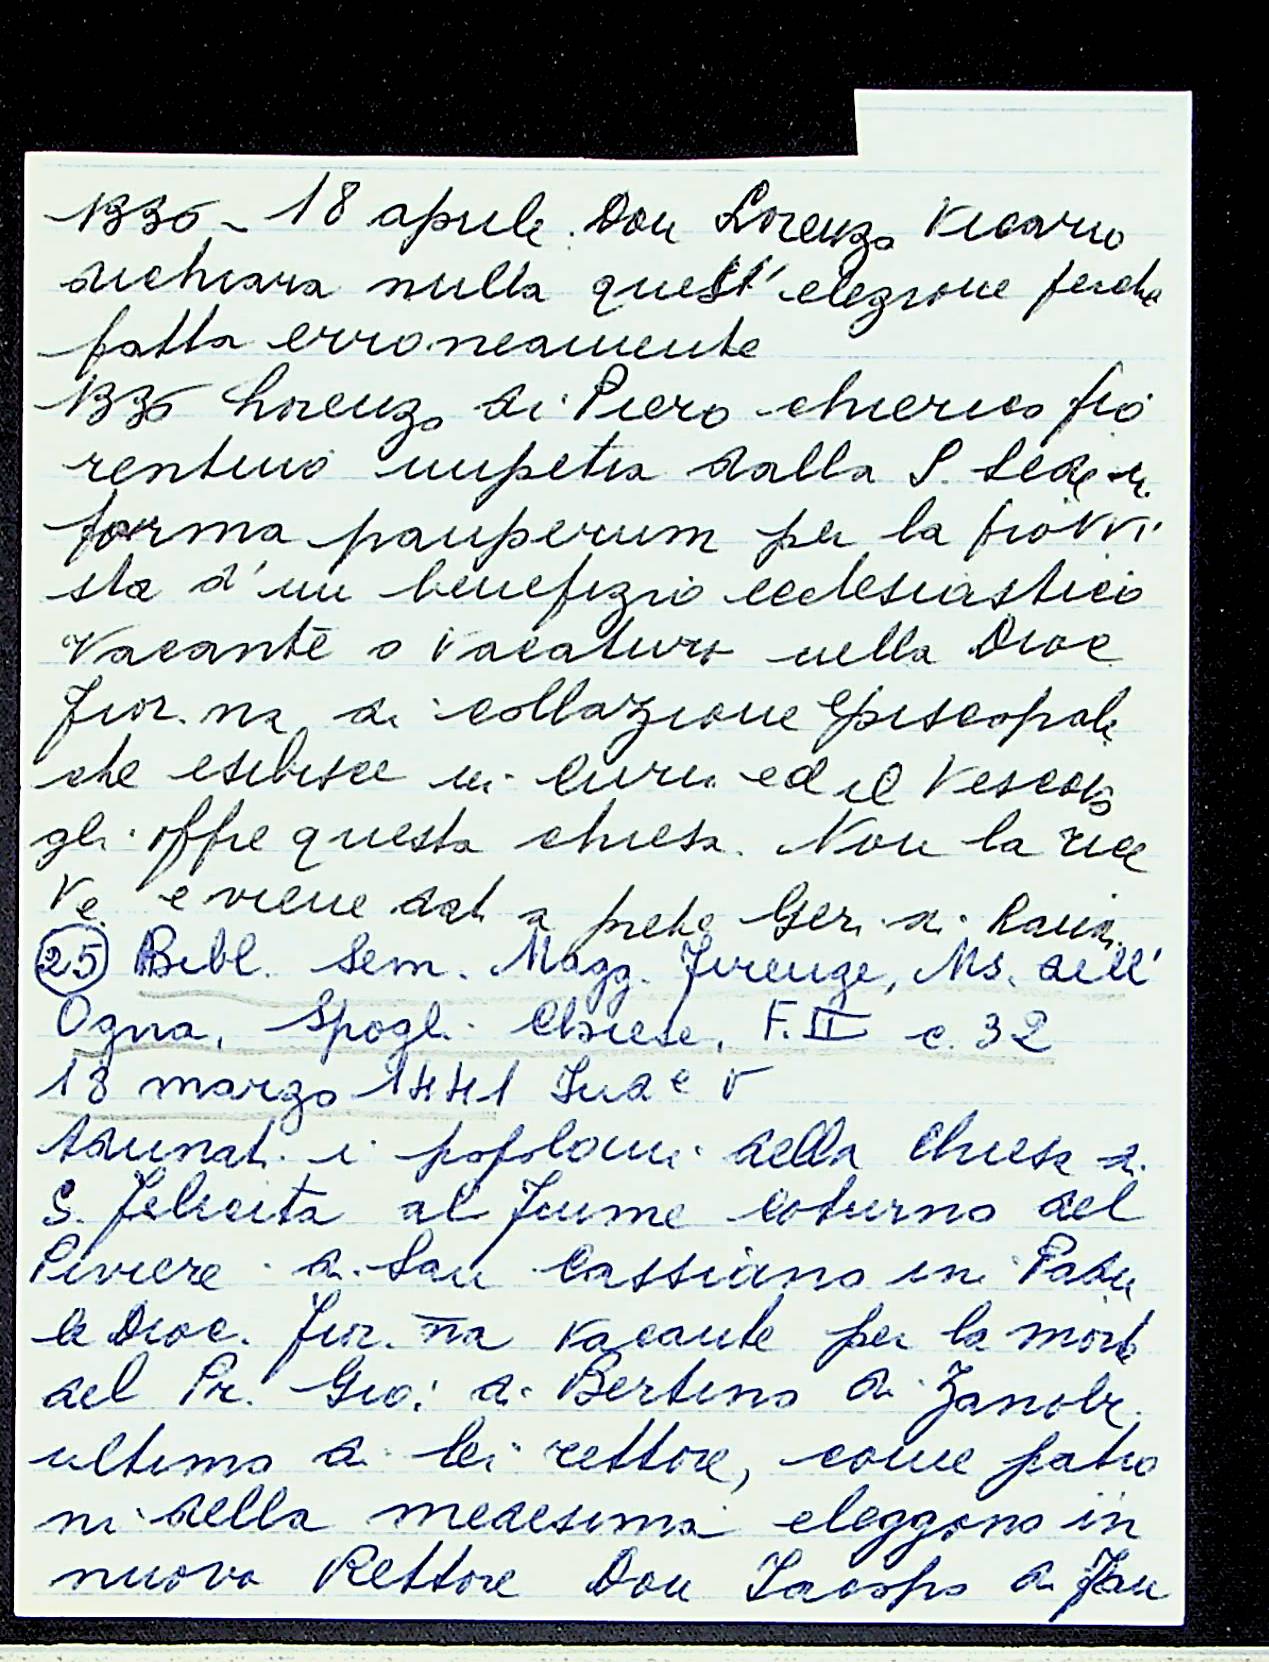 1336 - 18 aprile. Don Lorenzo Vicario
dichiara nulla quest'elezione perchè
fatta erroneamente
1336 Lorenzo di Piero chierico fio
rentino impetra dalla S. Sede in
forma pauperum per la provvi
sta d'un benefizio ecclesiastico
vacante o vacaturo nella Dioc
Fior.na di collazione episcopale
che esibisce in Curia ed il Vescovo
gli offre questa chiesa. Non la rice
ve e viene data a prete Geri di
(25) Bibl. Sem. Magg. Firenze, Ms. dell'
Ogna, Spogli Chiese, F. II c. 32
18 marzo 1441 Ind e V
Adunati i popolani della Chiesa di
S. Felicita al fiume coturno del
Piviere di San Cassiano in Padu
le Dioc. Fior.na vacante per la morte
del Pr. Gio: di Bertino di Zanobi
ultimo di lei rettore, come patro
ni della medesima eleggono in
nuovo Rettore Don Iacopo di